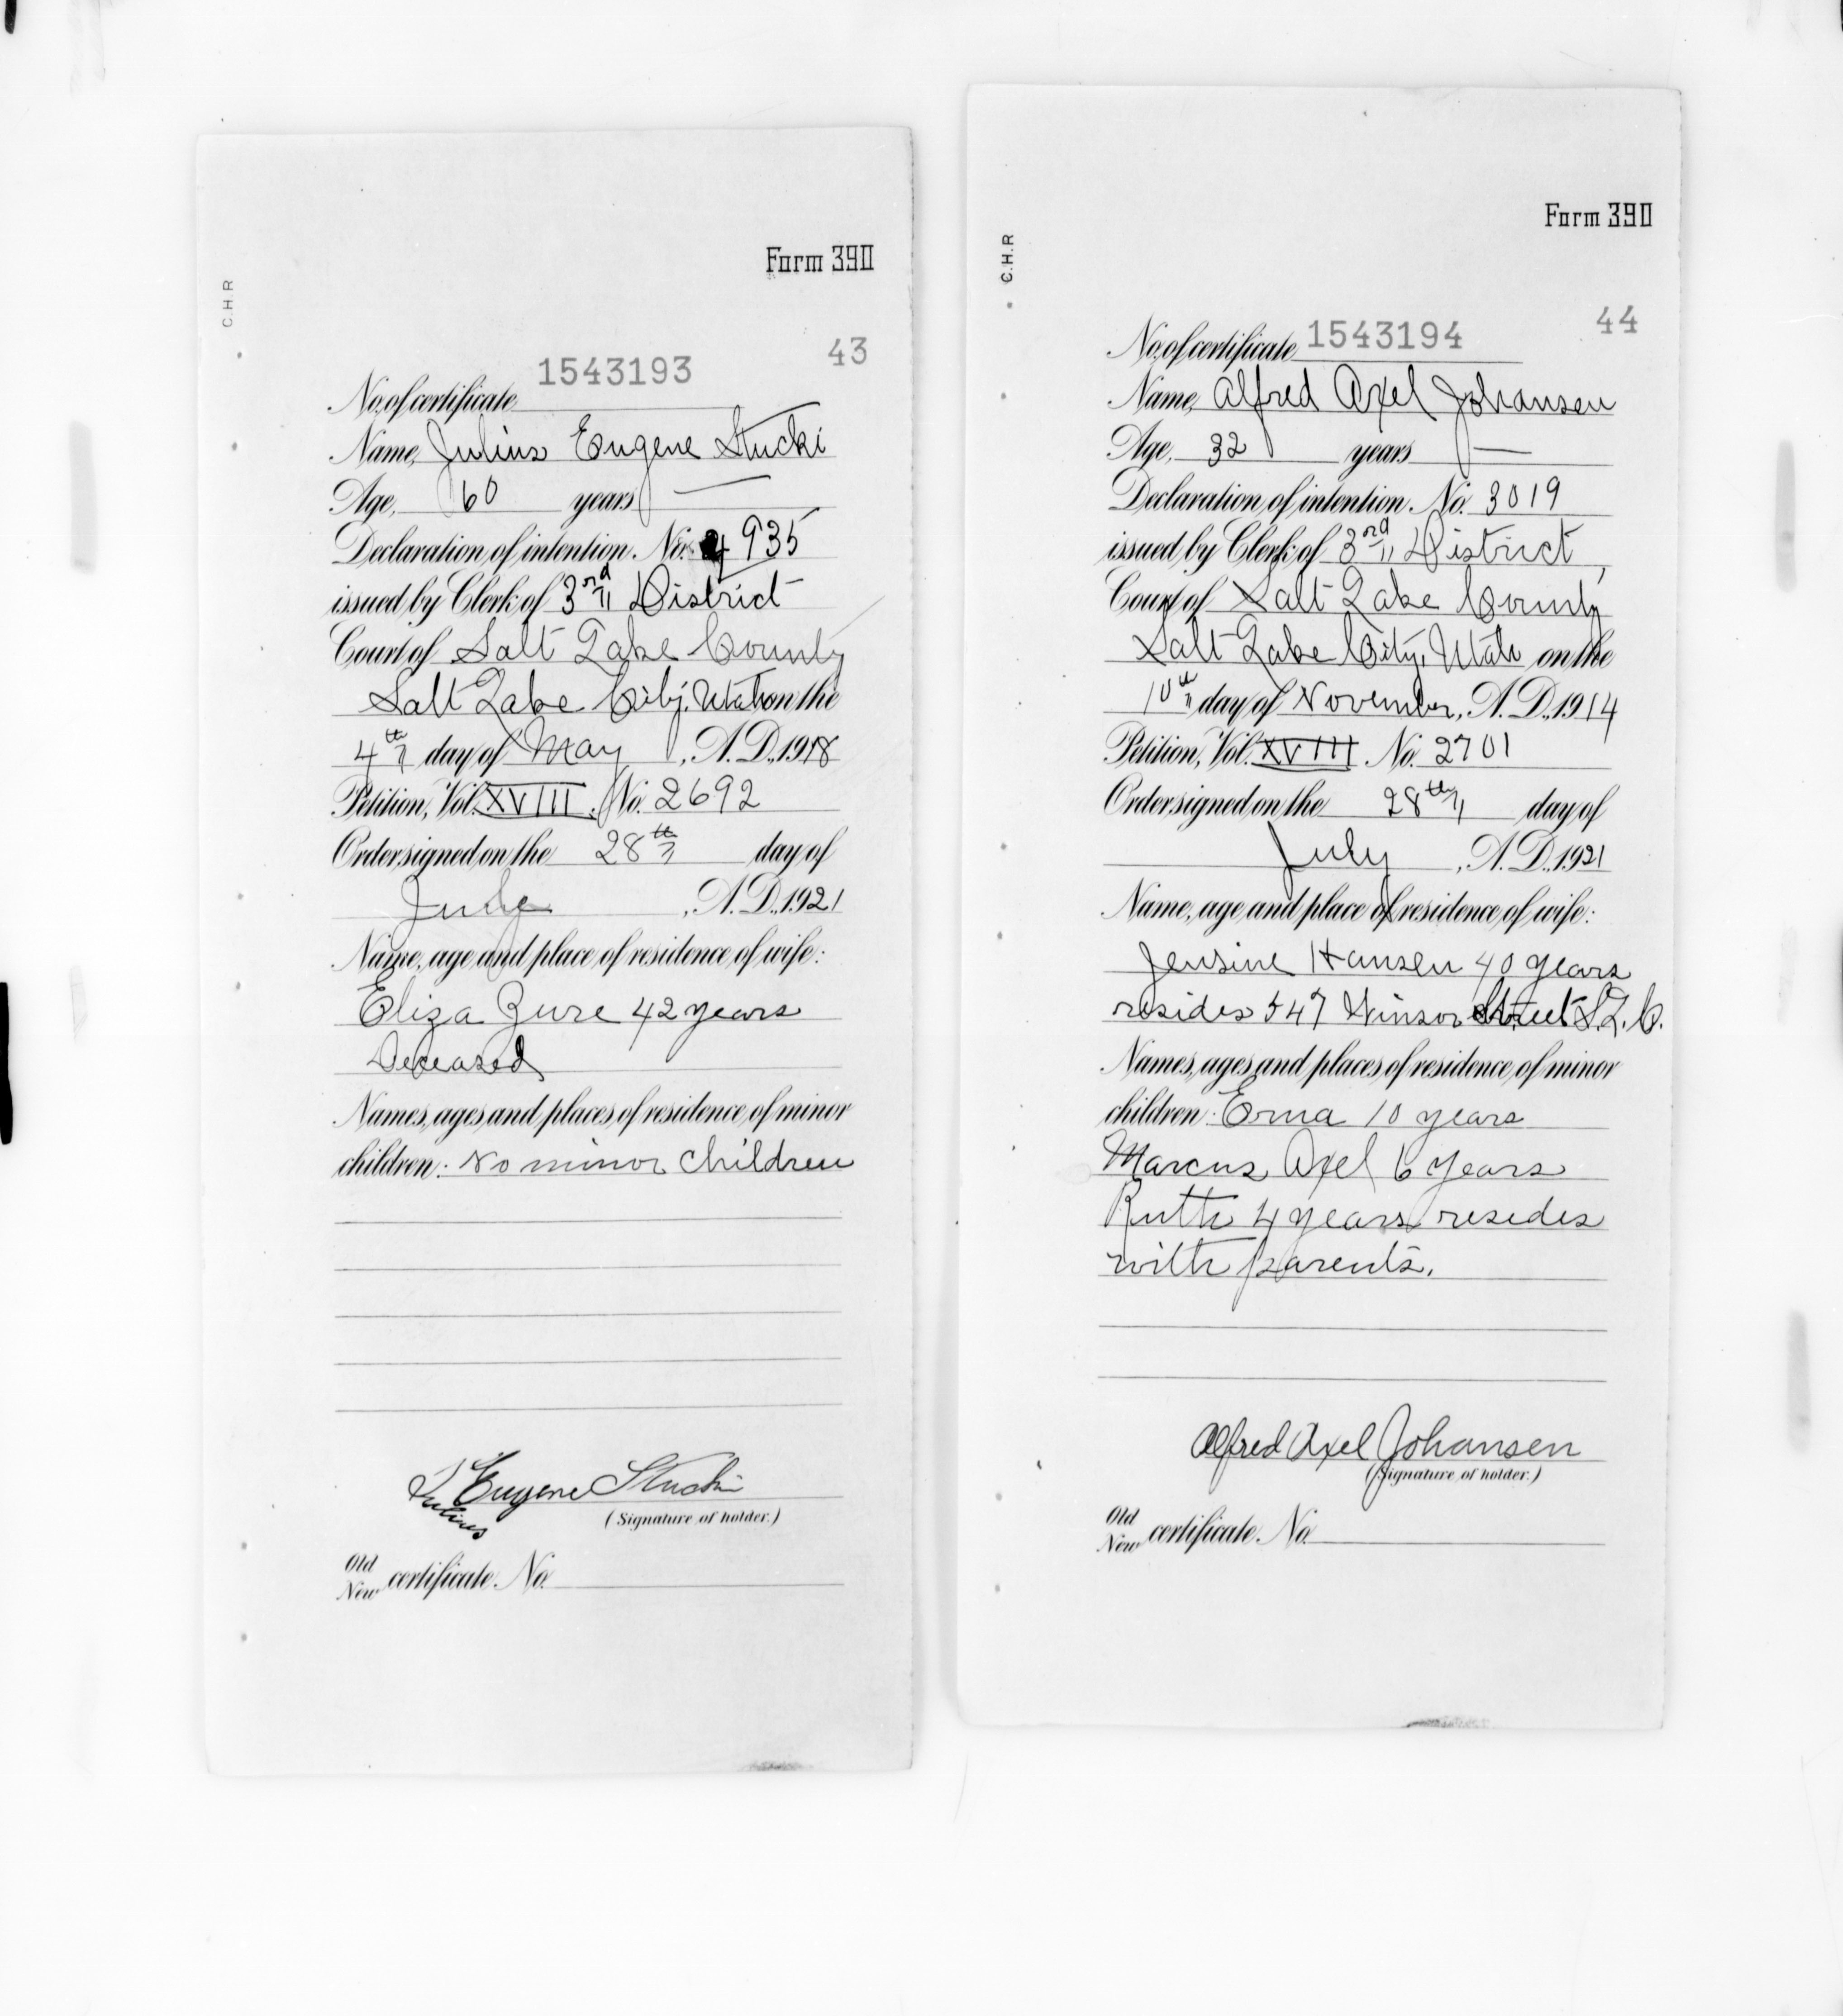 Form 390
C.H.R
43
No. of certificate 1543193
Name, Julius Eugene Stucki
Age, 60 years —
Declaration of intention No. 4935
issued by Clerk of 3rd District
Court of Salt Lake County
Salt Lake City, Utah on the
4th day of May, A.D. 1918
Petition, Vol. XVIII, No. 2692
Order signed on the 28th day of
A.D. 1921
Name, age and place of residence of wife:
Eliza 42 years
Deceased
Names, ages and places of residence of minor
children: No minor children
Julius Eugene Stucki
(Signature of holder.)
Old
New certificate No.
Form 390
C.H.R
44
No. of certificate 1543194
Name, Alfred Axel Johansen
Age, 32 years —
Declaration of intention No. 3019
issued by Clerk of 3rd District,
Court of Salt Lake County
Salt Lake City, Utah on the
10th day of November, A.D. 1914
Petition, Vol. XVIII No. 2701
Order signed on the 28th day of
July, A.D. 1921
Name, age and place of residence of wife:
Jensine Hansen 40 years
resides 547 Winsor Street S.L.C.
Names, ages and places of residence of minor
children: Erna 10 years
Marcus Axel 6 years
Ruth 4 years resides
with parents.
Alfred Axel Johansen
(Signature of holder.)
Old
New certificate No.